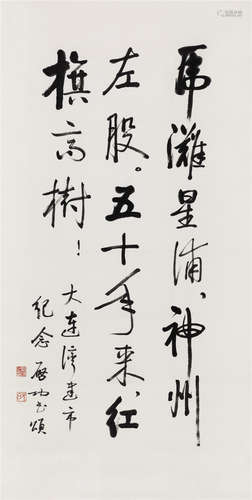 虎滩星浦、神州
左股。五十年来、红
旗高树！
大连湾建市
纪念 启功书颂